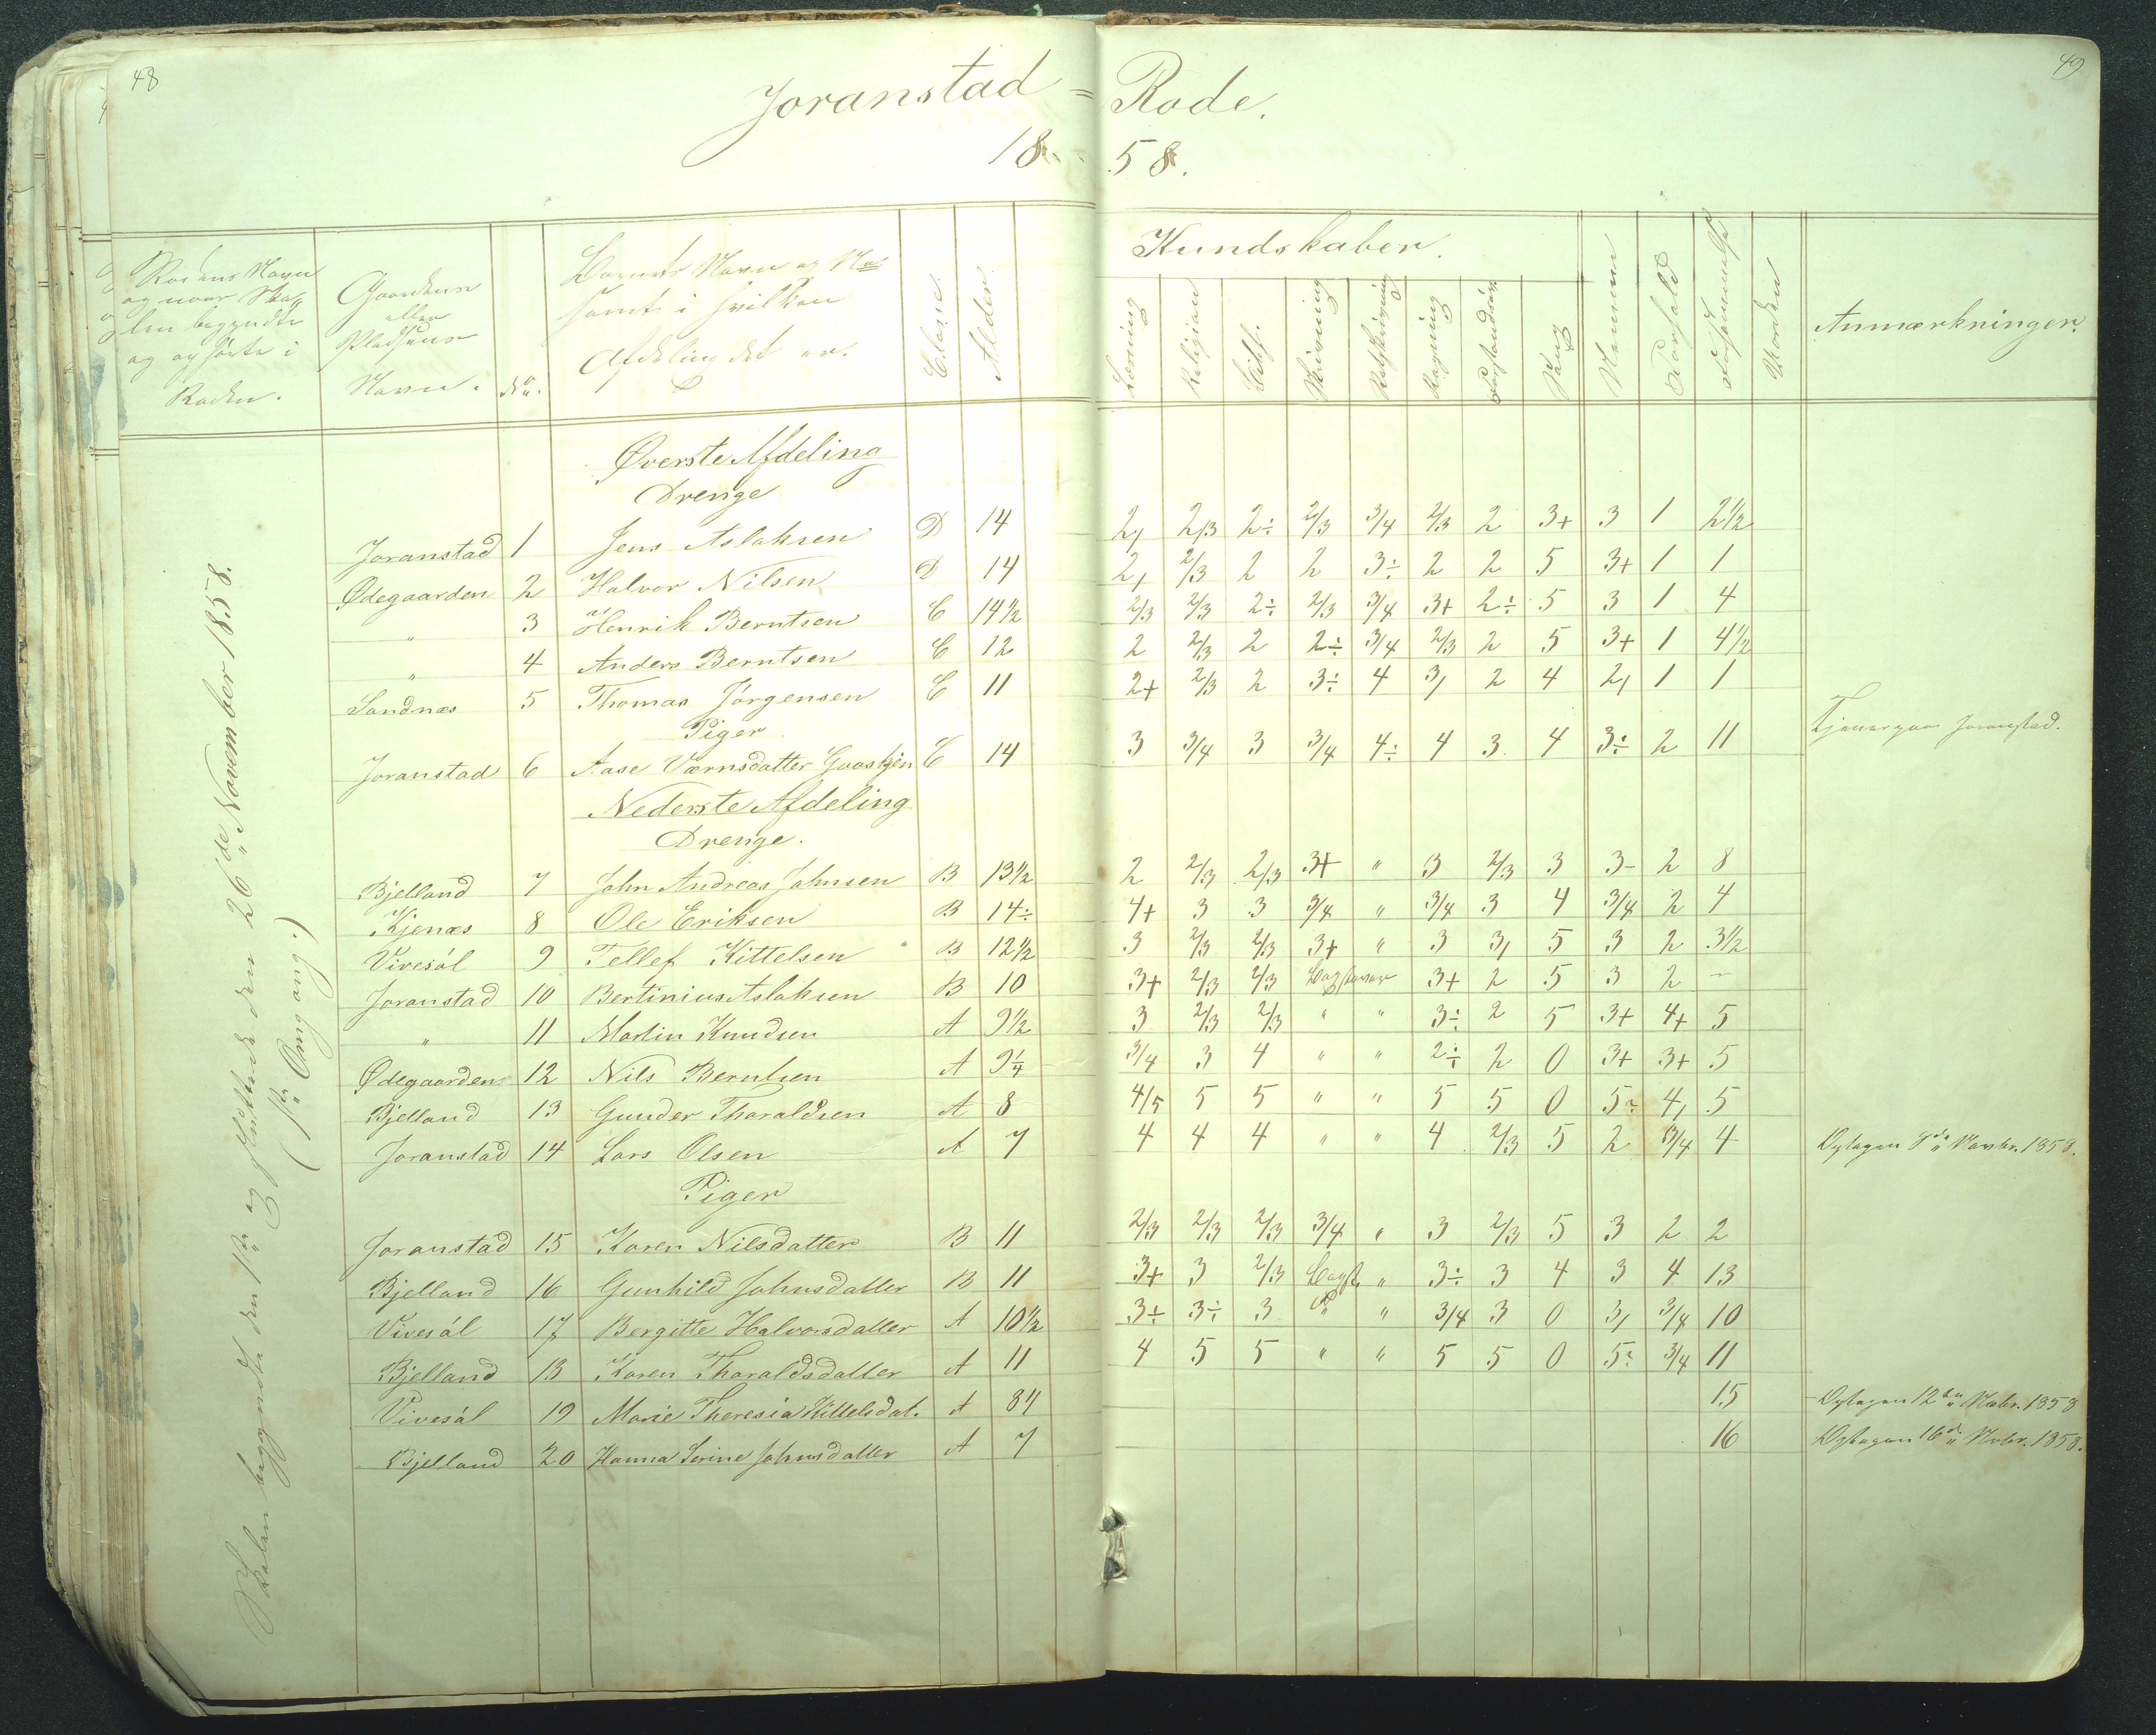 48
49
Joranstad = Rode.
18 58.
Rodens Navn og naar Skolen begyndte og ophørte i Roden.
Gaardens eller Pladsens Navn.
No.
Barnets Navn og No samt i hvilken Afdeling det er.
Classe.
Alder.
Kundskaber.
Læsning
Religion
Skrivning
Retskrivning
Regning
Forstandsöv.
Sang
Nemme
Forhold
Forsømmelse
Anmærkninger.
Skolen begyndte den 1ste og sluttede den 26de November 1858.
(1ste Omgang.)
Øverste Afdeling
Drenge
Joranstad 1 Jens Aslaksen D 14 2, 2/3 2÷ 2/3 3/4 2/3 2 3+ 3 1 2½
Ødegaarden 2 Halvor Nilsen D 14 2, 2/3 2 2 3÷ 2 2 5 3+ 1 1
" 3 Henrik Berntsen C 14½ 2/3 2/3 2÷ 2/3 3/4 3+ 2÷ 5 3 1 4
" 4 Anders Berntsen C 12 2 2/3 2 2÷ 3/4 2/3 2 5 3+ 1 4½
Sandnæs 5 Thomas Jörgensen C 11 2+ 2/3 2 3÷ 4 3, 2 4 2, 1 1
Piger
Joranstad 6 Aase Værnsdatter Gaaskjen C 14 3 3/4 3 3/4 4÷ 4 3 4 3÷ 2 11 Tjener paa Joranstad.
Nederste Afdeling
Drenge.
Bjelland 7 John Andreas Johnsen B 13½ 2 2/3 2/3 3+ " 3 2/3 3 3- 2 8
Kjenæs 8 Ole Eriksen B 14÷ 4+ 3 3 3/4 " 3/4 3 4 3/4 2 4
Vivesöl 9 Tellef Kittelsen B 12½ 3 2/3 2/3 3+ " 3 3, 5 3 2 3½
Joranstad 10 Bertinius Aslaksen B 10 3+ 2/3 2/3 Bogstaver 3+ 2 5 3 2 -
" 11 Martin Knudsen A 9½ 3 2/3 2/3 " " 3÷ 2 5 3+ 4+ 5
Ødegaarden 12 Nils Berntsen A 9¼ 3/4 3 4 " " 2÷ 2 0 3+ 3+ 5
Bjelland 13 Gunder Tharaldsen A 8 4/5 5 5 " " 5 5 0 5÷ 4, 5
Joranstad 14 Lars Olsen A 7 4 4 4 " " 4 2/3 5 2 3/4 4 Optagen 8de Novbr. 1858.
Piger
Joranstad 15 Karen Nilsdatter B 11 2/3 2/3 2/3 3/4 " 3 2/3 5 3 2 2
Bjelland 16 Gunhild Johnsdatter B 11 3+ 3 2/3 Bogst. " 3÷ 3 4 3 4 13
Vivesöl 17 Bergitte Halvorsdatter A 10½ 3÷ 3÷ 3 " " 3/4 3 0 3, 3/4 10
Bjelland 18 Karen Tharaldsdatter A 11 4 5 5 " " 5 5 0 5÷ 3/4 11
Vivesöl 19 Marie Theresia Kittelsdat. A 15 Optagen 12te Novbr. 1858
Bjelland 20 Hanna Serine Johnsdatter A 7 16 Optagen 16de Novbr. 1858.